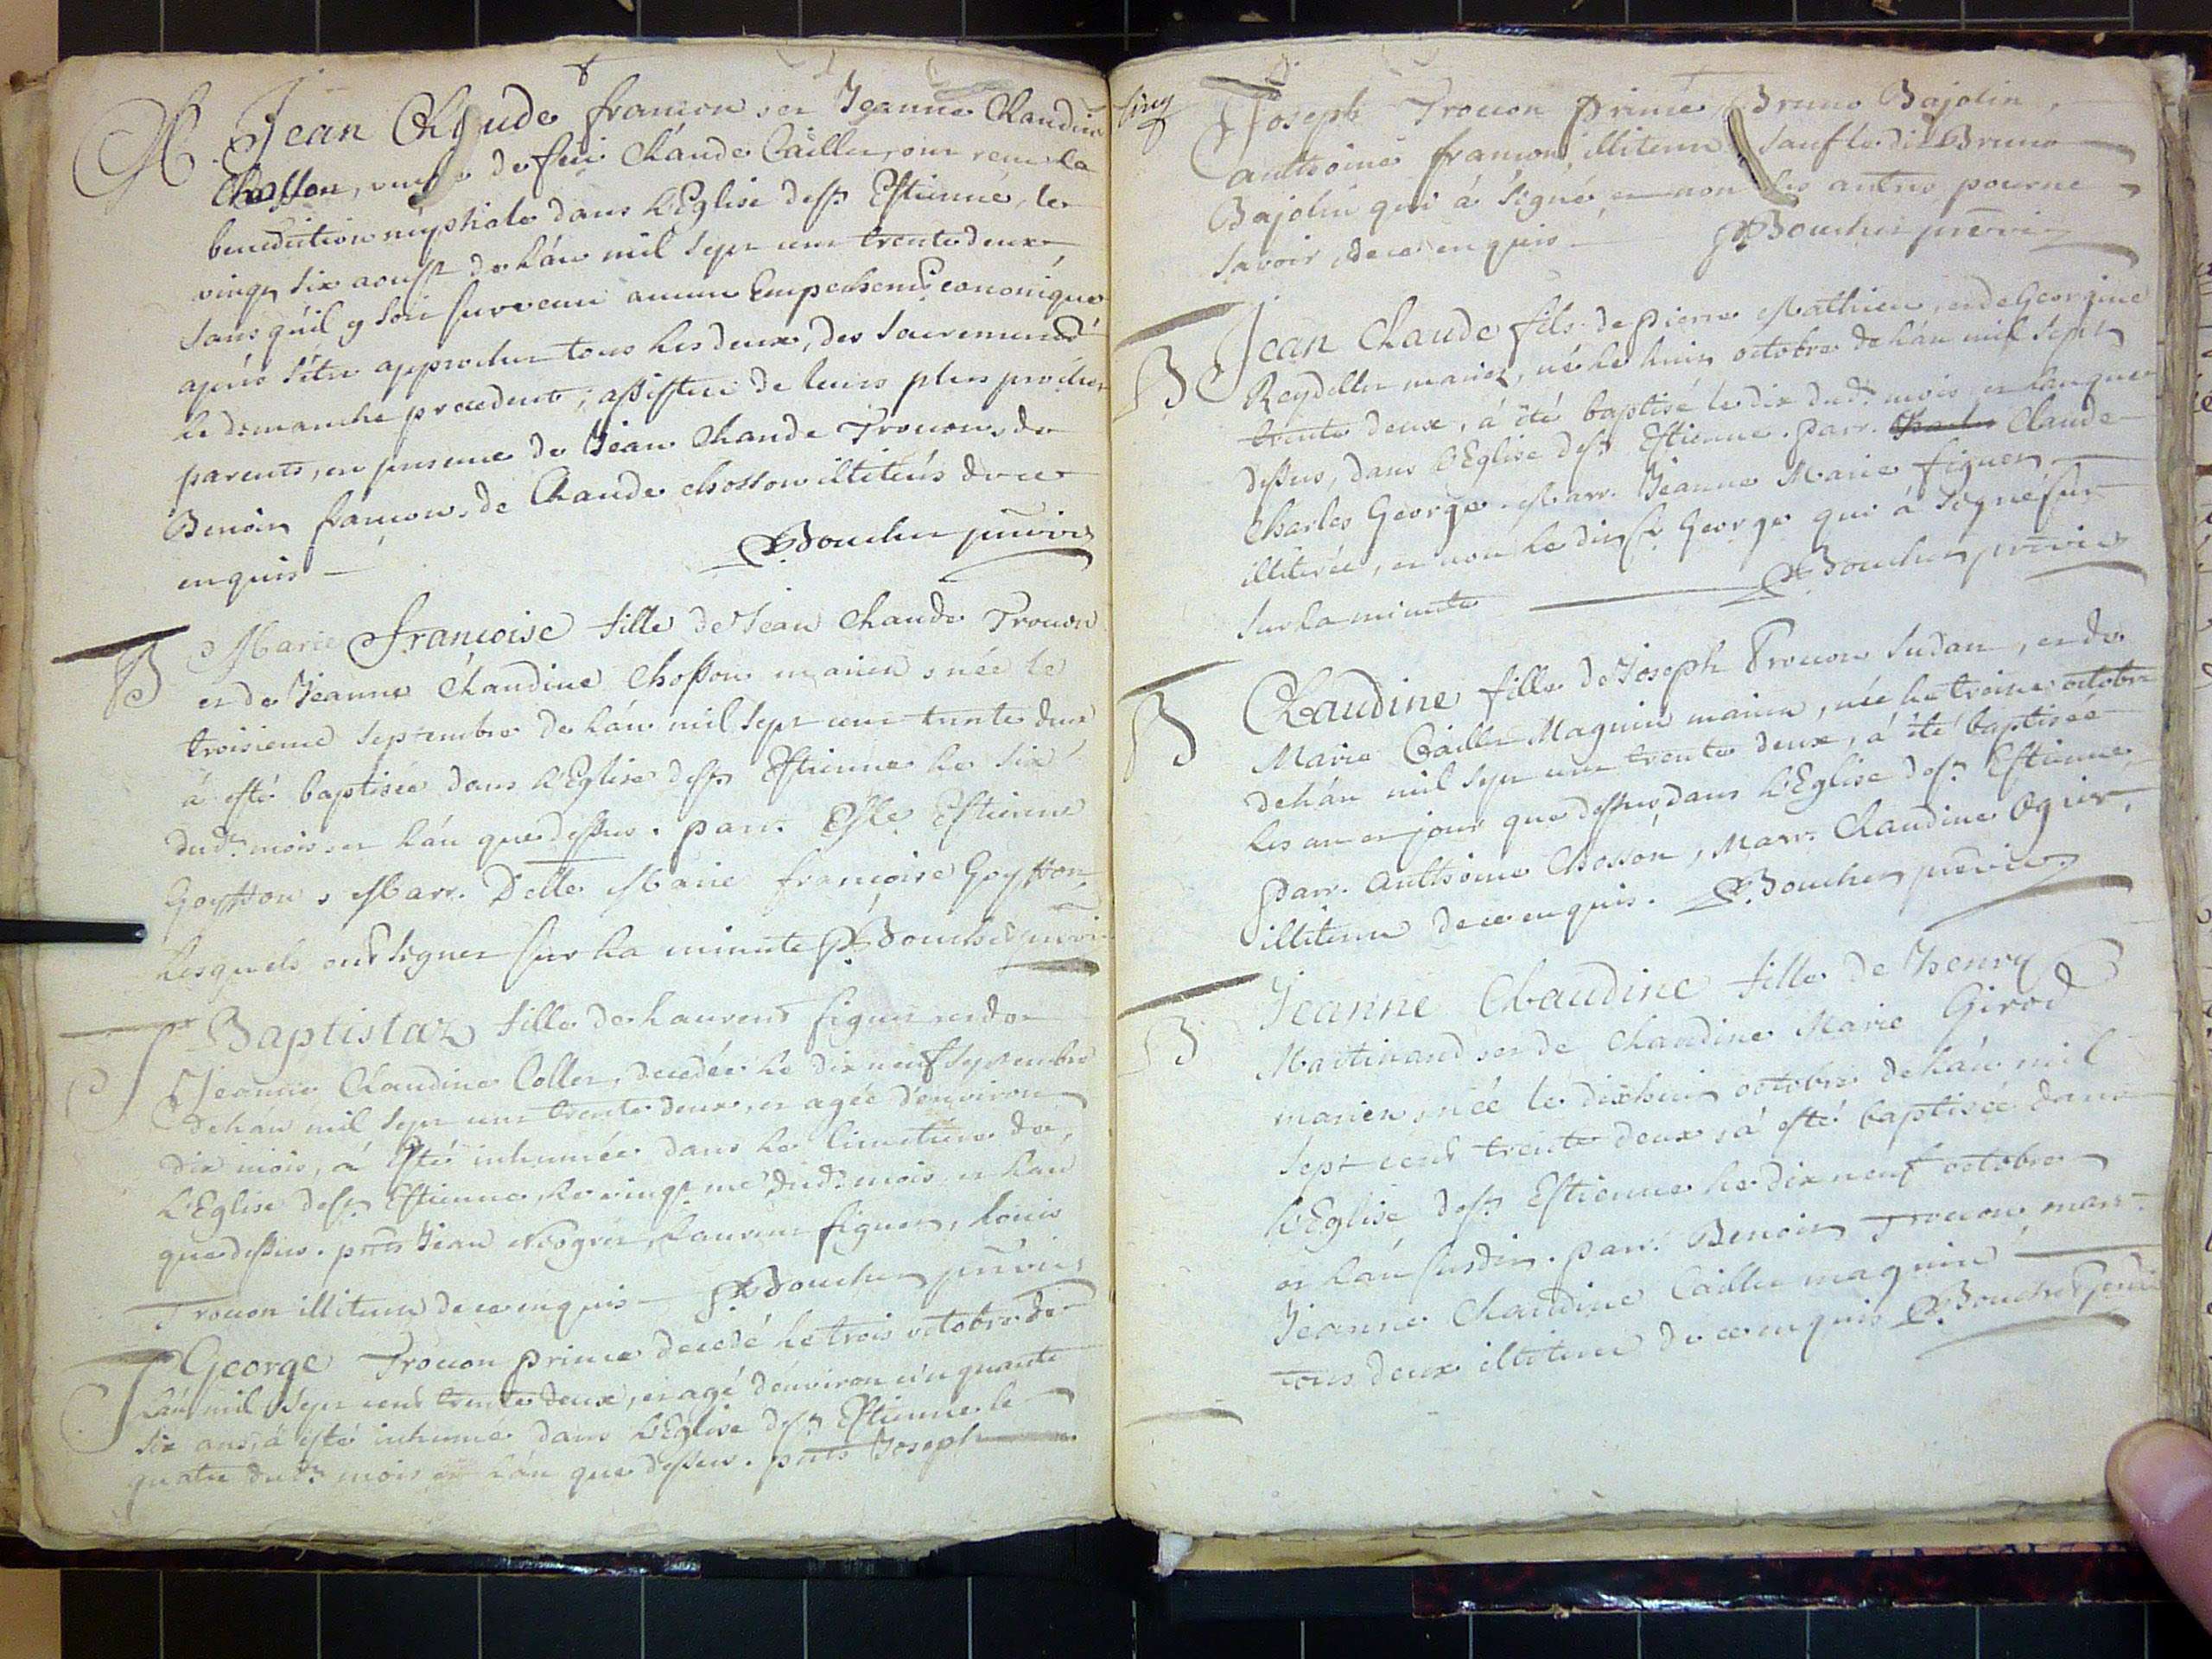 M. Jean Claude francon et Jeanne Claudine
Chosson, veuve de feu Claude Cailler, ont recu la
benediction nuptiale dans L'Eglise de st Estienne, le
vingt six aoust de L'án mil sept cent trente deux
sans qu'il y soit survenu aucun Empechemt. canonique
aprés s'étre approcher tous les deux, des Sacrements
Le dimanche precedent; assister de leurs plus proches
parents, en presence de Jean Claude Trouon, de
Benoit francon, de Claude chosson illiterés de ce
enquis — Boucher previre
B Marie francoise fille de Jean Claude Trouon
et de Jeanne Claudine Chosson marier, née le
troisieme septembre de L'án mil sept cent trente deux
á esté baptisée dans L'Eglise de st Estienne Le six
dudt. mois et L'án que dessus. parr. Estienne
Goyffon, Marr. Delle Marie françoise Goyffon,
Lesquels ont signer sur La minute Boucher
Baptistaz fille de Laurent figuet et de
Jeanne Claudine Collet, decedée Le dix neuf septembre
de L'án mil sept cent trente deux, et agée d'environ
dix mois, á esté inhumée dans Le Cimetiere de
L'Eglise de st Estienne, Le vingt me dudt. mois et L'an
que dessus. pnts Jean Laurent figuet, Louis
Trouon illiterer de ce enquis — Boucher previre
George Trouon prime decedé Le trois octobre de
L'án mil sept cent trente deux, et agé d'environ cinquante
six ans, á esté inhumé dans L'Eglise de st Estienne le
quatre dudt. mois et L'án que dessus. pnts Joseph
cinq
Joseph Trouon Prime, Bruno Bajolin,
anthoine francon, illiterer, sauf ledit Bruno
Bajolin qui á signé, et non les autres pour ne
savoir de ce enquis — Boucher previre
B Jean Claude fils de pierre Mathieu, et de Georgine
Reydellet marier, né Le huit octobre de L'án mil sept
trente deux, á été baptisé le dix dudt. mois et L'an que
dessus, dans L'Eglise de st Estienne. Parr. Claude
Charles George. Marr. Jeanne Marie figuet
illiterée, et non Le dit Sr. George qui á signé sur
sur La minute — Boucher previre
B Claudine fille de Joseph Trouon Sudan, et de
Marie Cailler Maguin marier, née Le treize octobre
de L'án mil sept cent trente deux, á été baptisée
Les an et jour que dessus, dans L'Eglise de st Estienne,
Parr. anthoine Chosson, Marr. Claudine Ogier,
illiterer de ce enquis. Boucher previre
B Jeanne Claudine fille de henry
Martinand et de Claudine Marie Girod
marier, née le dixhuit octobre de L'án mil
sept cent trente deux, á esté baptisée dans
L'Eglise de st Estienne Le dix neuf octobre
et L'án susdit. parr. Benoit Trouon, marr.
Jeanne Claudine Cailler maguin
tous deux illiterer de ce enquis Boucher